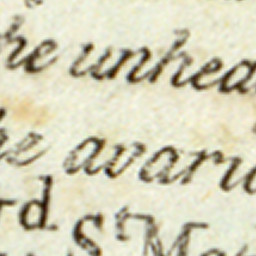 he unhea
he avari
rd. St. Ma